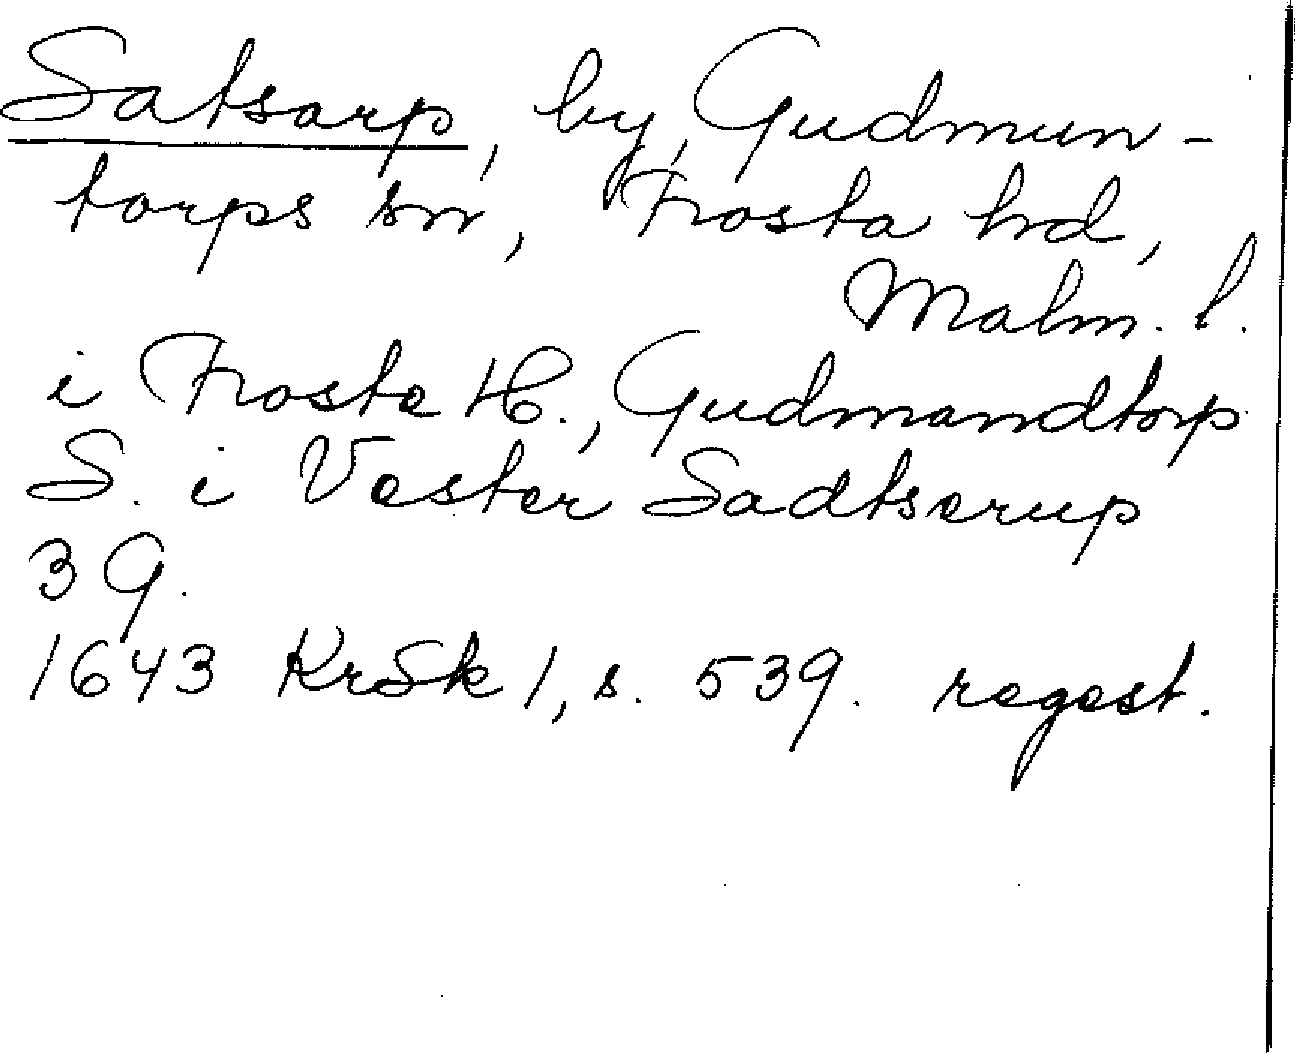 Satsarp, by, Gudmun-
torps sn, Frosta hd,
Malm. l.
i Froste H., Gudmandtorp
S. i Vester Sadtserup
3 G.
1643 KrSk 1, s. 539. regest.